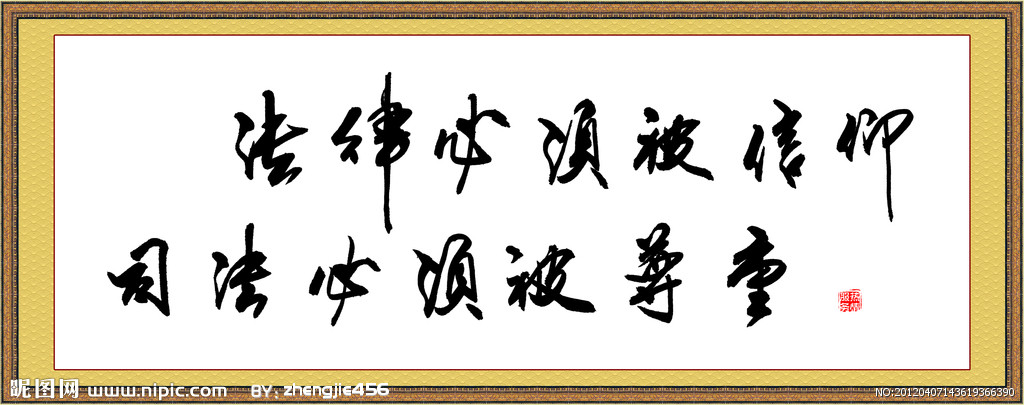 法律必须被信仰
司法必须被尊重
热情
服务
昵图网 www.nipic.com BY: zhengjie456
NO:20120407143619366390